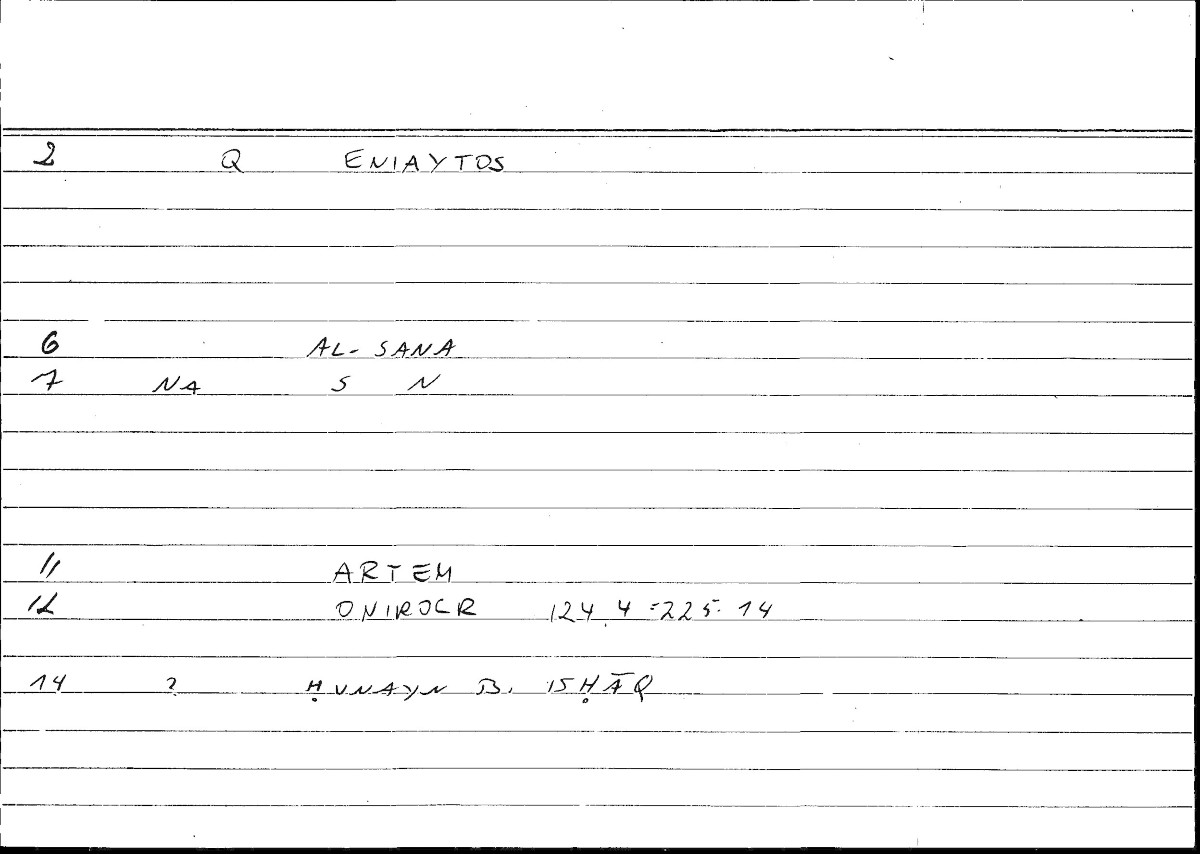 2 Q ENIAYTOS
6 AL-SANA
7 NA S N
11 ARTEM
12 ONIROCR 124,4 = 225.14
14 ? ḤUNAYN B. ISḤĀQ